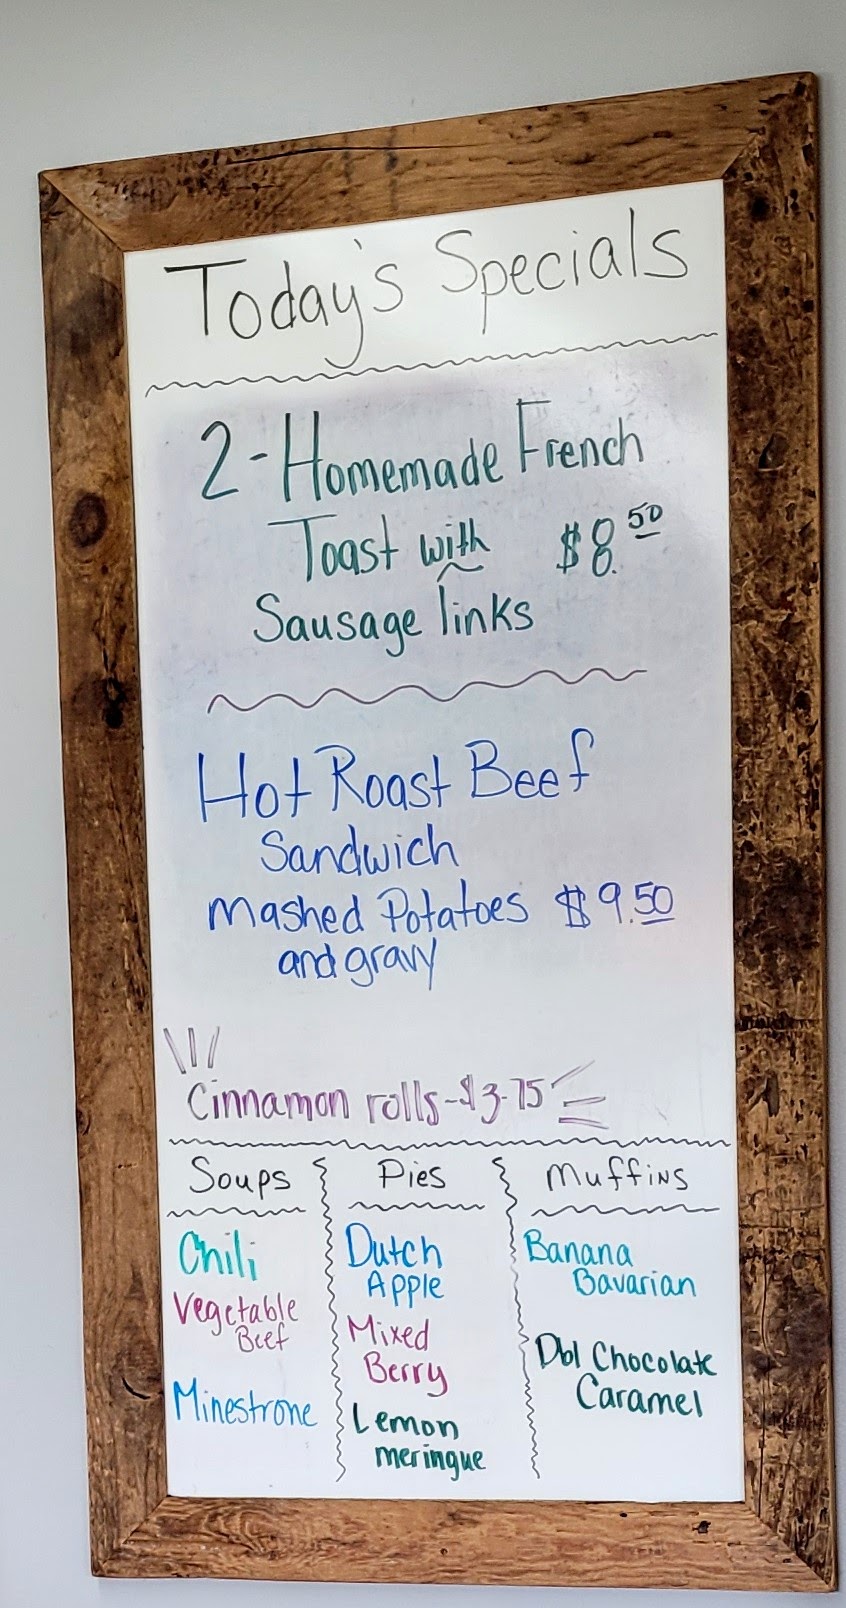 Today's Specials
2-Homemade French
Toast with $8.50
Sausage links
Hot Roast Beef
Sandwich
Mashed Potatoes $9.50
and gravy
Cinnamon rolls-$3.75
Soups Pies Muffins
Chili
Vegetable
Beef
Minestrone
Dutch
Apple
Mixed
Berry
Lemon
meringue
Banana
Bavarian
Dbl Chocolate
Caramel